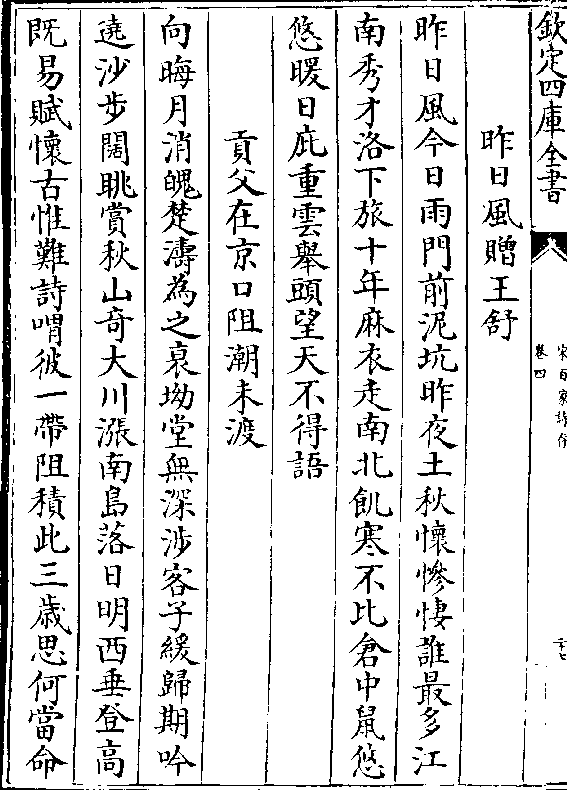 欽定四庫全書
宋百家詩存
卷四
昨日風贈王舒
昨日風今日雨門前泥坑昨夜土秋懷慘悽誰最多江
南秀才洛下旅十年麻衣走南北飢寒不比倉中鼠悠
悠暖日庇重雲舉頭望天不得語
貢父在京口阻潮未渡
向晦月消魄楚濤為之衰坳堂無深涉客子緩歸期吟
遶沙步闊眺賞秋山奇大川漲南島落日明西垂登高
既易賦懷古惟難詩喟彼一帶阻積此三歲思何當命